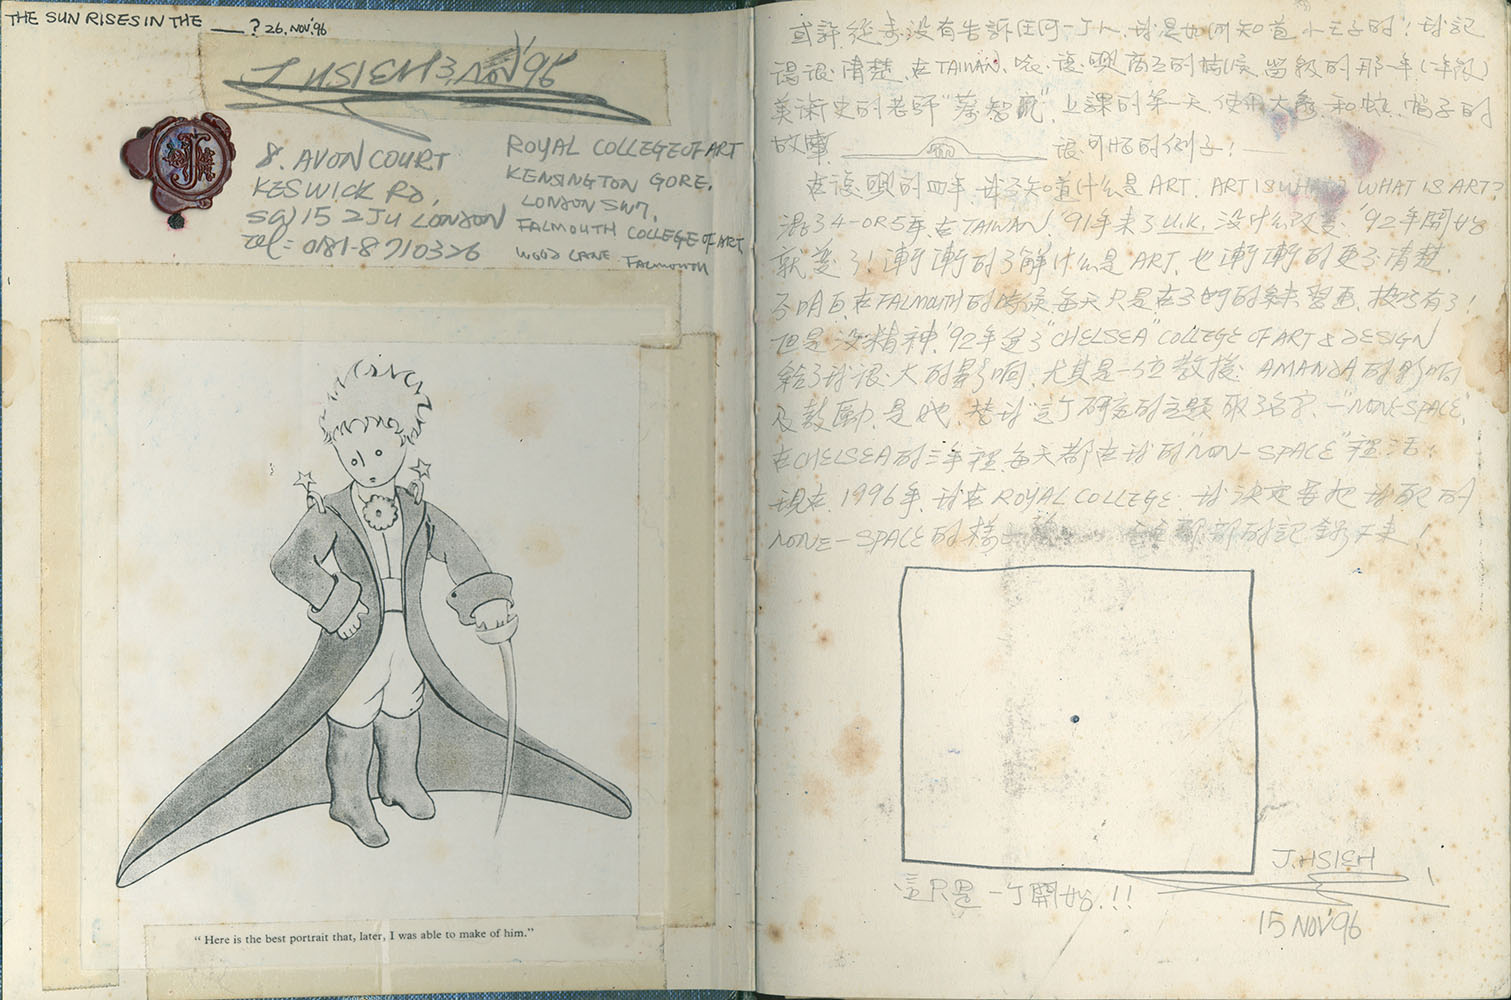 THE SUN RISES IN THE ___? 26. NOV. '96
J. HSIEH 3, NOV '96
8. AVON COURT
KESWICK RD,
SW15 2JU LONDON
Tel: 0181-8710326
ROYAL COLLEGE OF ART
KENSINGTON GORE.
LONDON SW7,
FALMOUTH COLLEGE OF ART,
WOOD LANE FALMOUTH
J
“ Here is the best portrait that, later, I was able to make of him.”
或許從未沒有告訴任何一个人,我是如何知道小王子的!我記
得很清楚,在TAIWAN, 唸復興商工的時候,留級的那一年(二年級)
美術史的老師"蔡智" 上課的第一天,使用大象和蛇,帽子的
故事 很可怕的例子!
在復興的四年,我不知道什麼是ART. ART IS WHAT? WHAT IS ART?
混了4-OR5年在TAIWAN, '91年來了U.K. 沒什么改變 '92年開始
就變了!漸漸的了解什么是ART, 也漸漸的更不清楚,
不明白,在FALMOUTH的時候每天只是在不停的練習画,技巧有了!
但是沒精神,'92年進了"CHELSEA" COLLEGE OF ART & DESIGN
給了我很大的影响,尤其是一位教授 AMANDA的影响
及鼓勵,是她,替我這个研究的主題取了名字,—"NONE-SPACE",
在CHELSEA的三年裡,每天都在我的"NON-SPACE"裡活!
現在,1996年,我在ROYAL COLLEGE, 我決定要把我的
NONE-SPACE的樣 的記錄下來!
J. HSIEH
這只是一个開始!!!
15 NOV '96